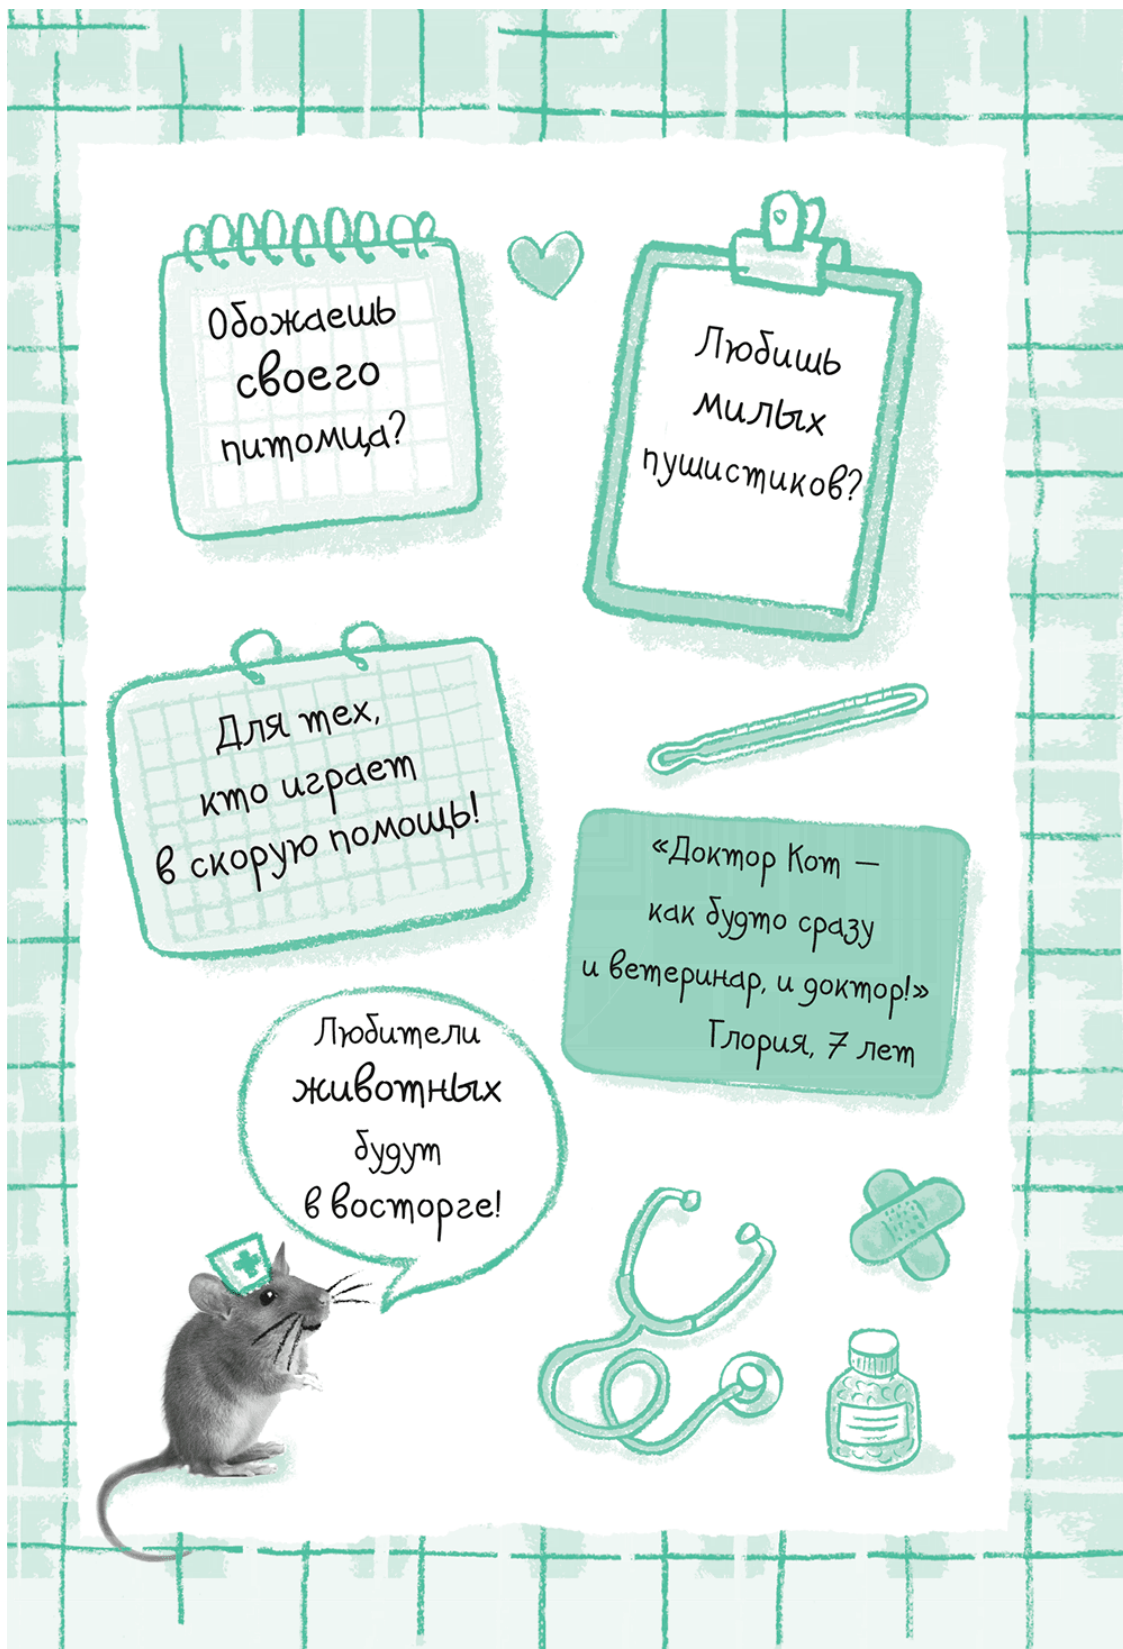 Обожаешь
своего
питомца?
Любишь
милых
пушистиков?
Для тех,
кто играет
в скорую помощь!
«Доктор Кот —
как будто сразу
и ветеринар, и доктор!»
Глория, 7 лет
Любители
животных
будут
в восторге!